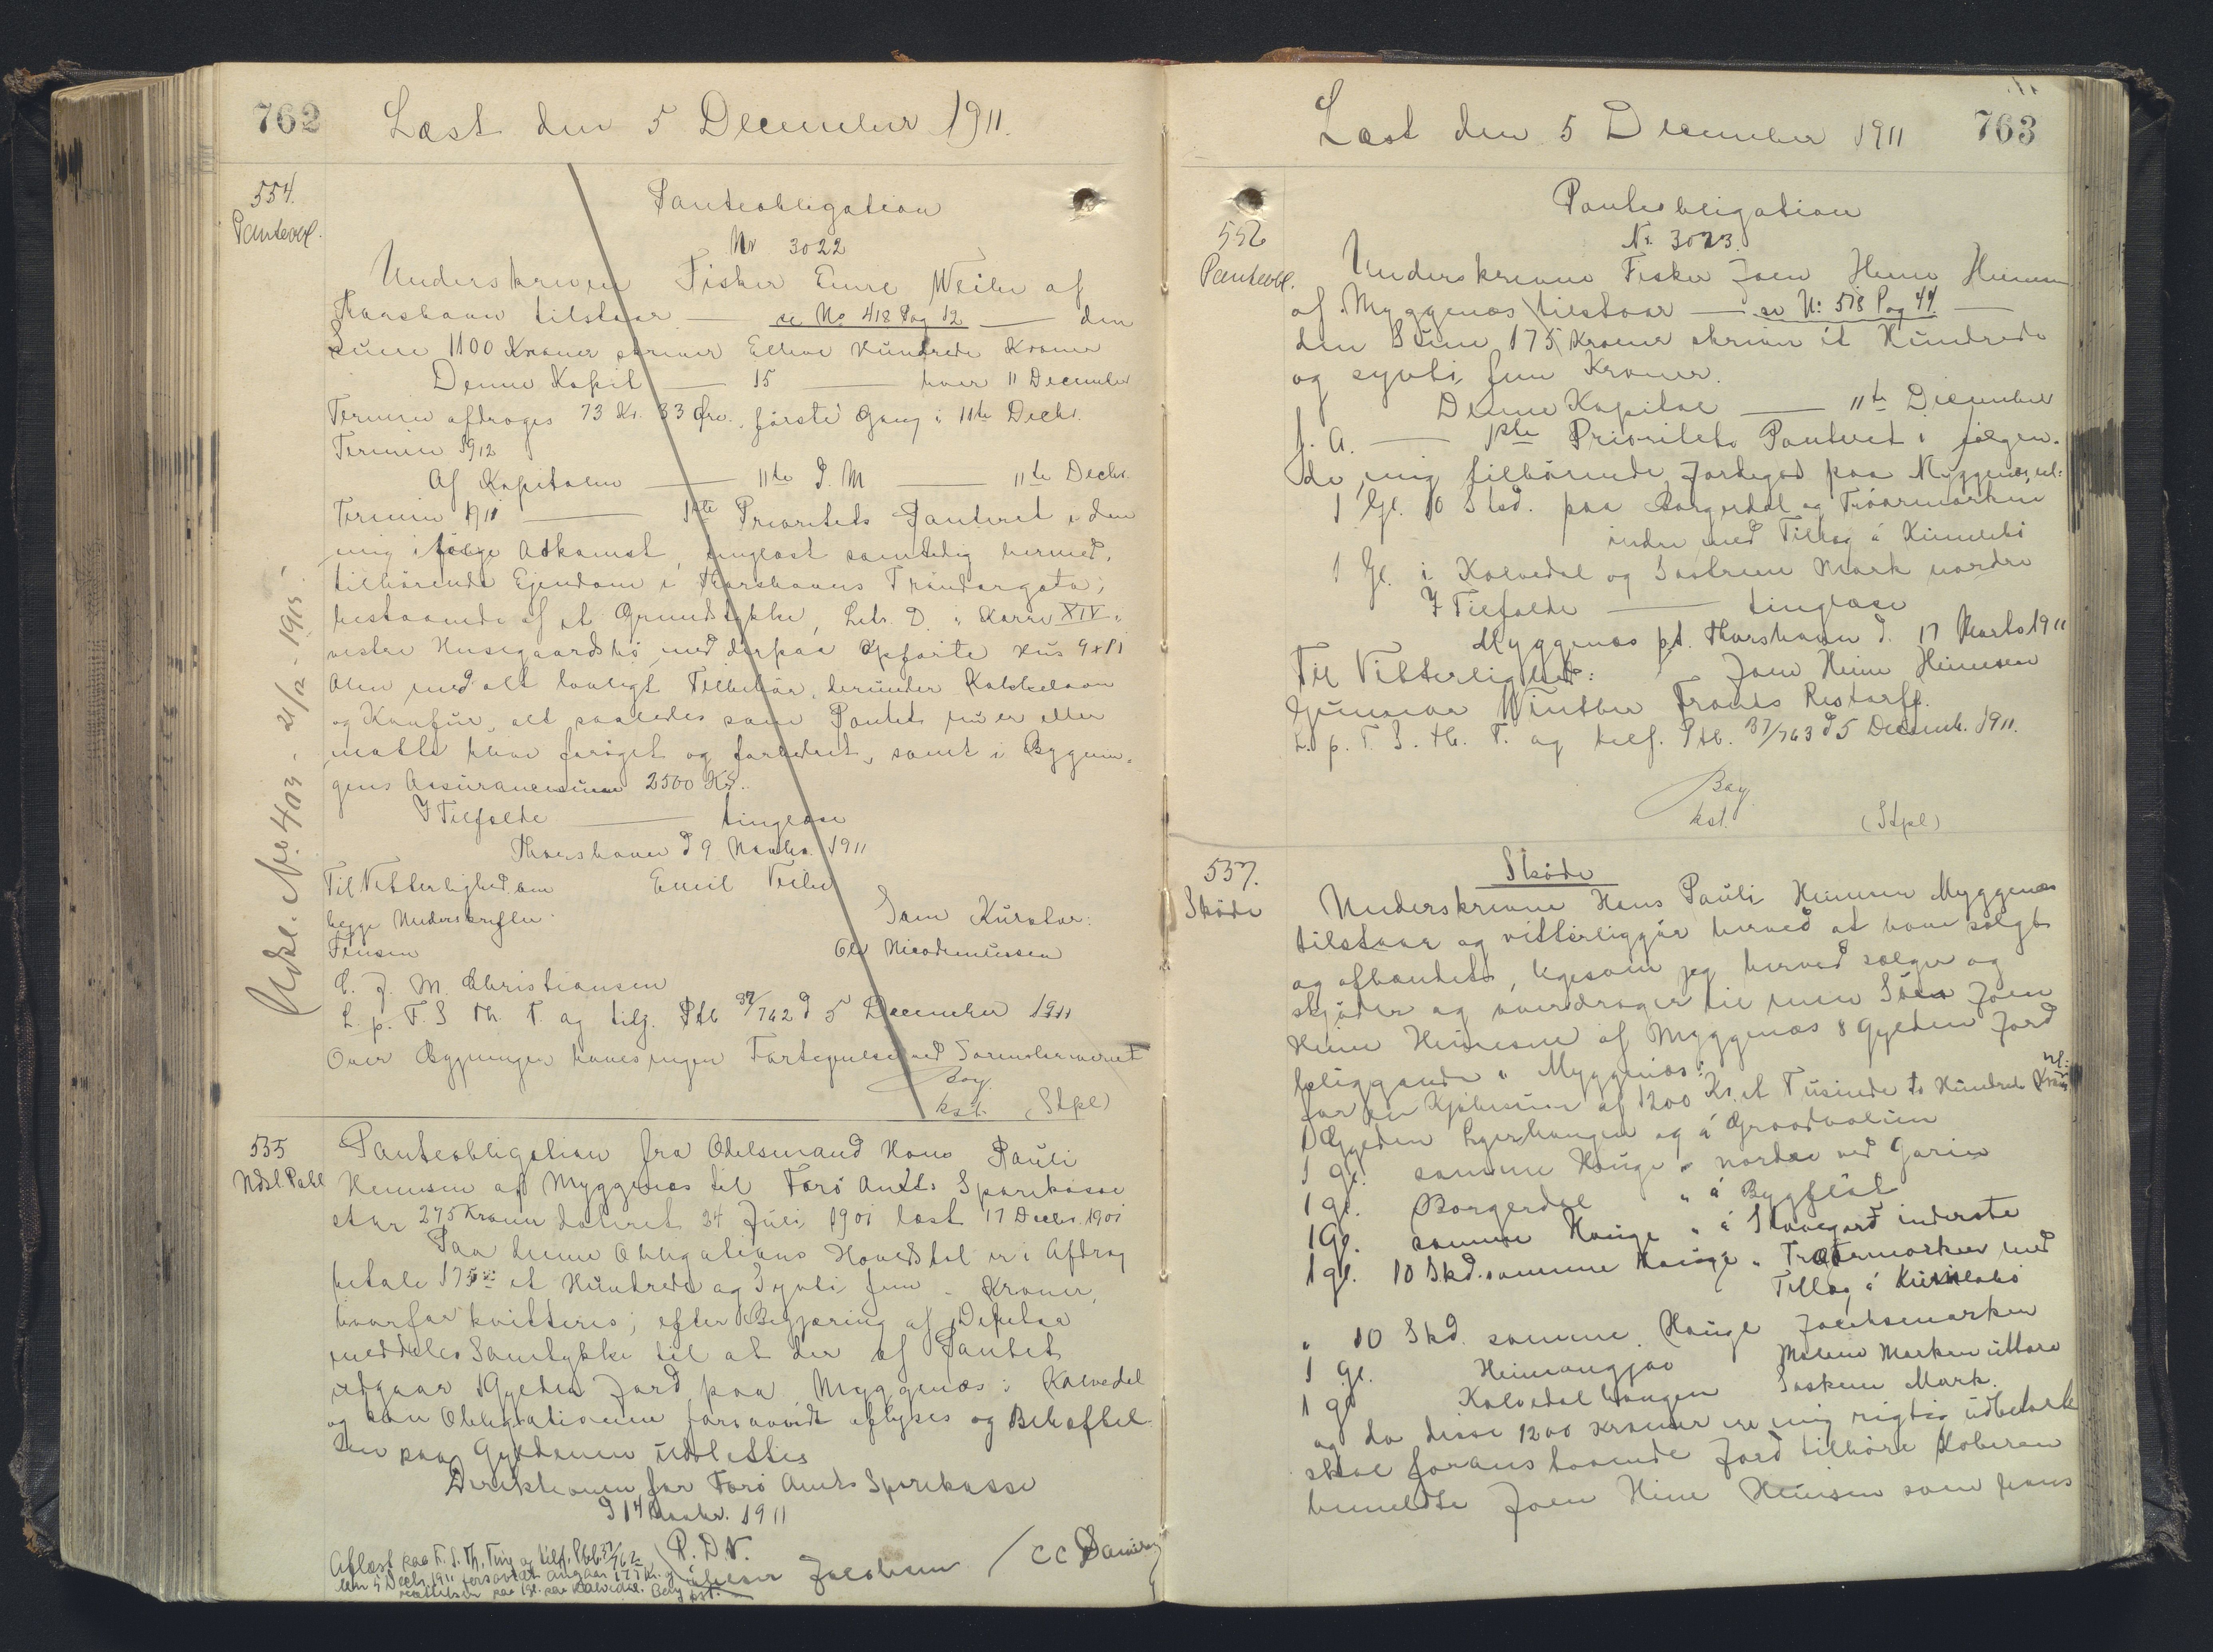 762
Læst den 5 December 1911.
554.
Panteobl.
Panteobligation
Nr 3022
Underskreven Fisker Emil Weihe af
Thorshavn tilstaar — se No 418 Pag 12 — den
Sum 1100 Kroner skriver Elleve Hundrede Kroner
Denne Kapit — 15 — hver 11 December
Termin afdrages 73 Kr. 33 Øre, første Gang i 11te Decbr.
Termin 1912
Af Kapitalen — 11te D. M — 11te Decbr.
Termin 1911 — 1ste Prioritets Panteret i den
mig ifølge Adkomst, tinglæst samtidig hermed,
tilhørende Ejendom i Thorshavns Tróndargøta,
bestaaende af et Grundstykke, Litr. D. i Karré XIV i
vestre Husegaardsbø med derpaa opførte Hus 9x11
Alen med alt lovligt Tilbehør, herunder Kakkelovn
og Komfur, alt saaledes som Pantet nu er eller
maatte blive forøget og forbedret, samt i Bygnin-
gens Assurancesum 2500 Kr.
I Tilfælde — tinglæse
Thorshavn d 9 Novbr. 1911
Til Vitterlighed om
Emil Weihe
begge Underskrifter
Som Kurator:
Ole Nicodemussen
C. J. M. Christiansen
L. p. F. S Th. T. og tilf. Ptb 37/762 d 5 December 1911
Over Bygningen haves ingen Fortegnelse ved Sorenskriveriet
Bay
kst. (Stpl)
Udsl. No. 403 - 21/12 - 1915.
555
Udsl. Pobl
Panteobligation fra Odelsmand Hans Pauli
Heinesen af Myggenæs til Færø Amts Sparekasse
stor 275 Kroner dateret 24 Juli 1901 læst 17 Decbr. 1901
Paa denne Obligations Hovedstol er i Afdrag
betalt 175 Kr et Hundrede og Syvti fem - Kroner,
hvorfor kvitteres; efter Begjæring af Debitor
meddeles Samtykke til at der af Pantet
udgaar 1 Gylden Jord paa Myggenæs i Kalvedal
og kan Obligationen forsaavidt aflyses og Behæftel-
sen paa Gyldenen udslettes
Direktionen for Færø Amts Sparekasse
d 14 Novbr. 1911
P. D. V.
Jacobsen / C C Danielsen
Aflæst paa F. S. Th. Ting og tilf. Ptb. 37/762
den 5 Decbr 1911 forsaavidt angaar 175 Kr. og
hæftelsen paa 1 Gl. paa Kalvedal. Bay kst.
763
Læst den 5 December 1911
556
Panteobl.
Panteobligation
Nr. 3023.
Underskrevne Fisker Joen Heine Heinesen
af Myggenæs tilstaar — se No 518 Pag 44. —
den Sum 175 Kroner skriver et Hundrede
og syvti fem Kroner.
Denne Kapital — 11te December
f. A. — 1ste Prioritets Panteret i følgen-
de, mig tilhørende Jordegods paa Myggenæs, nl:
1 Gl. 10 Skd. paa Borgerdal og Tróarmarken
indre med Tillag á Kinnebø
1 Gl. i Kalvedal og Mark nordre
I Tilfælde — tinglæse
Myggenæs pt. Thorshavn d. 17 Marts 1911
Til Vitterlighed:
Joen Heine Heinesen
Gunnar Winther Frants Restorff.
L. p. F. S. Th. T. og tilf. Ptb. 37/763 d 5 Decemb. 1911.
Bay
kst.
(Stpl)
557.
Skøde
Skøde
Underskrevne Hans Pauli Heinesen Myggenæs
tilstaar og vitterliggjør herved at have solgt
og afhændet, ligesom jeg herved sælger og
skjøder og overdrager til min Søn Joen
Heine Heinesen af Myggenæs 8 Gylden Jord
beliggende i Myggenæs:
for en Kjøbesum af 1200 Kr. et Tusinde to Hundrede Kroner nl:
1 Gylden og á
1 Gl. samme Hauge nordre ved Garin
1 Gl. Borgerdal " á
1 Gl. samme Hauge " á inderste
1 Gl. 10 Skd. samme Hauge " med
Tillag á Kinnebø
" 10 Skd. samme Hauge
1 Gl. Marken uttare
1 Gl Kalvedal haugen Mark.
og da disse 1200 Kroner ere mig rigtig udbetalt
skal foranstaaende Jord tilhøre Køberen
bemeldte Joen Heine Heinesen som hans